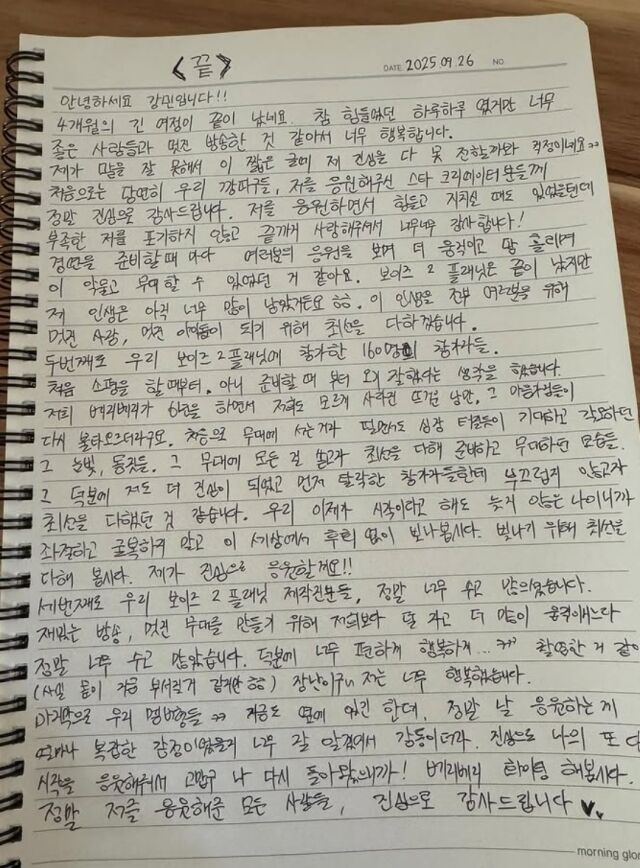 <끝>
DATE 2025.09.26 NO.
안녕하세요 강민입니다!!
4개월의 긴 여정이 끝이 났네요. 참 힘들었던 하루하루 였지만 너무
좋은 사람들과 멋진 방송한 것 같아서 너무 행복합니다.
제가 말을 잘 못해서 이 짧은 글에 제 진심을 다 못 전할까봐 걱정이네요ㅠㅠ
처음으로는 당연히 우리 깡따구들, 저를 응원해주신 스타 크리에이터 분들께
정말 진심으로 감사드립니다. 저를 응원하면서 힘들고 지치신 때도 있었을텐데
부족한 저를 포기하지 않고 끝까지 사랑해주셔서 너무너무 감사합니다!
경연을 준비할 때 마다 여러분의 응원을 보며 더 움직이고 땀 흘리며
이 악물고 무대할 수 있었던 거 같아요. 보이즈 2 플래닛은 끝이 났지만
제 인생은 아직 너무 많이 남았거든요 ㅎㅎ. 이 인생을 전부 여러분을 위해
멋진 사람, 멋진 아이돌이 되기 위해 최선을 다하겠습니다.
두번째로 우리 보이즈 2 플래닛에 참가한 160명의 참가자들.
처음 소평을 할 때부터. 아니 준비할 때 부터 오기 잘했다는 생각을 했습니다
저희 베리베리가 하면서 저희도 모르게 사라진 뜨거운 낭만. 그 마음가짐들이
다시 불타오르더라구요. 처음으로 무대에 서는거라 떨면서도 심장 터질듯이 기대하고 갈망하던
그 눈빛, 몸짓들. 그 무대에 모든 걸 쏟고자 최선을 다해 준비하고 무대하던 모습들.
그 덕분에 저도 더 진심이 되었고 먼저 탈락한 참가자들한테 부끄럽지 않고자
최선을 다했던 것 같습니다. 우리 이제가 시작이라고 해도 늦지 않은 나이니까
좌절하고 굴복하지 말고 이 세상에서 후회 없이 보내봅시다. 빛나기 위해 최선을
다해 봅시다. 제가 진심으로 응원할게요!!
세번째로 우리 보이즈 2 플래닛 제작진분들, 정말 너무 수고 많으셨습니다.
재밌는 방송, 멋진 무대를 만들기 위해 저희보다 덜 자고 더 많이 움직이느라
정말 너무 수고 많았습니다. 덕분에 너무 편하게 행복하게... ㅠㅠ 촬영한 거 같아
(사실 몸이 지금 부서질거 같지만 ㅎㅎ) 장난이구 저는 너무 행복했습니다.
마지막으로 우리 멤버형들 ㅠㅠ 지금도 옆에 있긴 한데, 정말 날 응원하는게
얼마나 복잡한 감정이었을지 너무 잘 알겠어서 감동이더라. 진심으로 나의 또 다
시작을 응원해줘서 고맙구 나 다시 돌아왔으니까! 베리베리 화이팅 해봅시다.
정말 저를 응원해준 모든 사람들, 진심으로 감사드립니다 ♥♥
morning glo